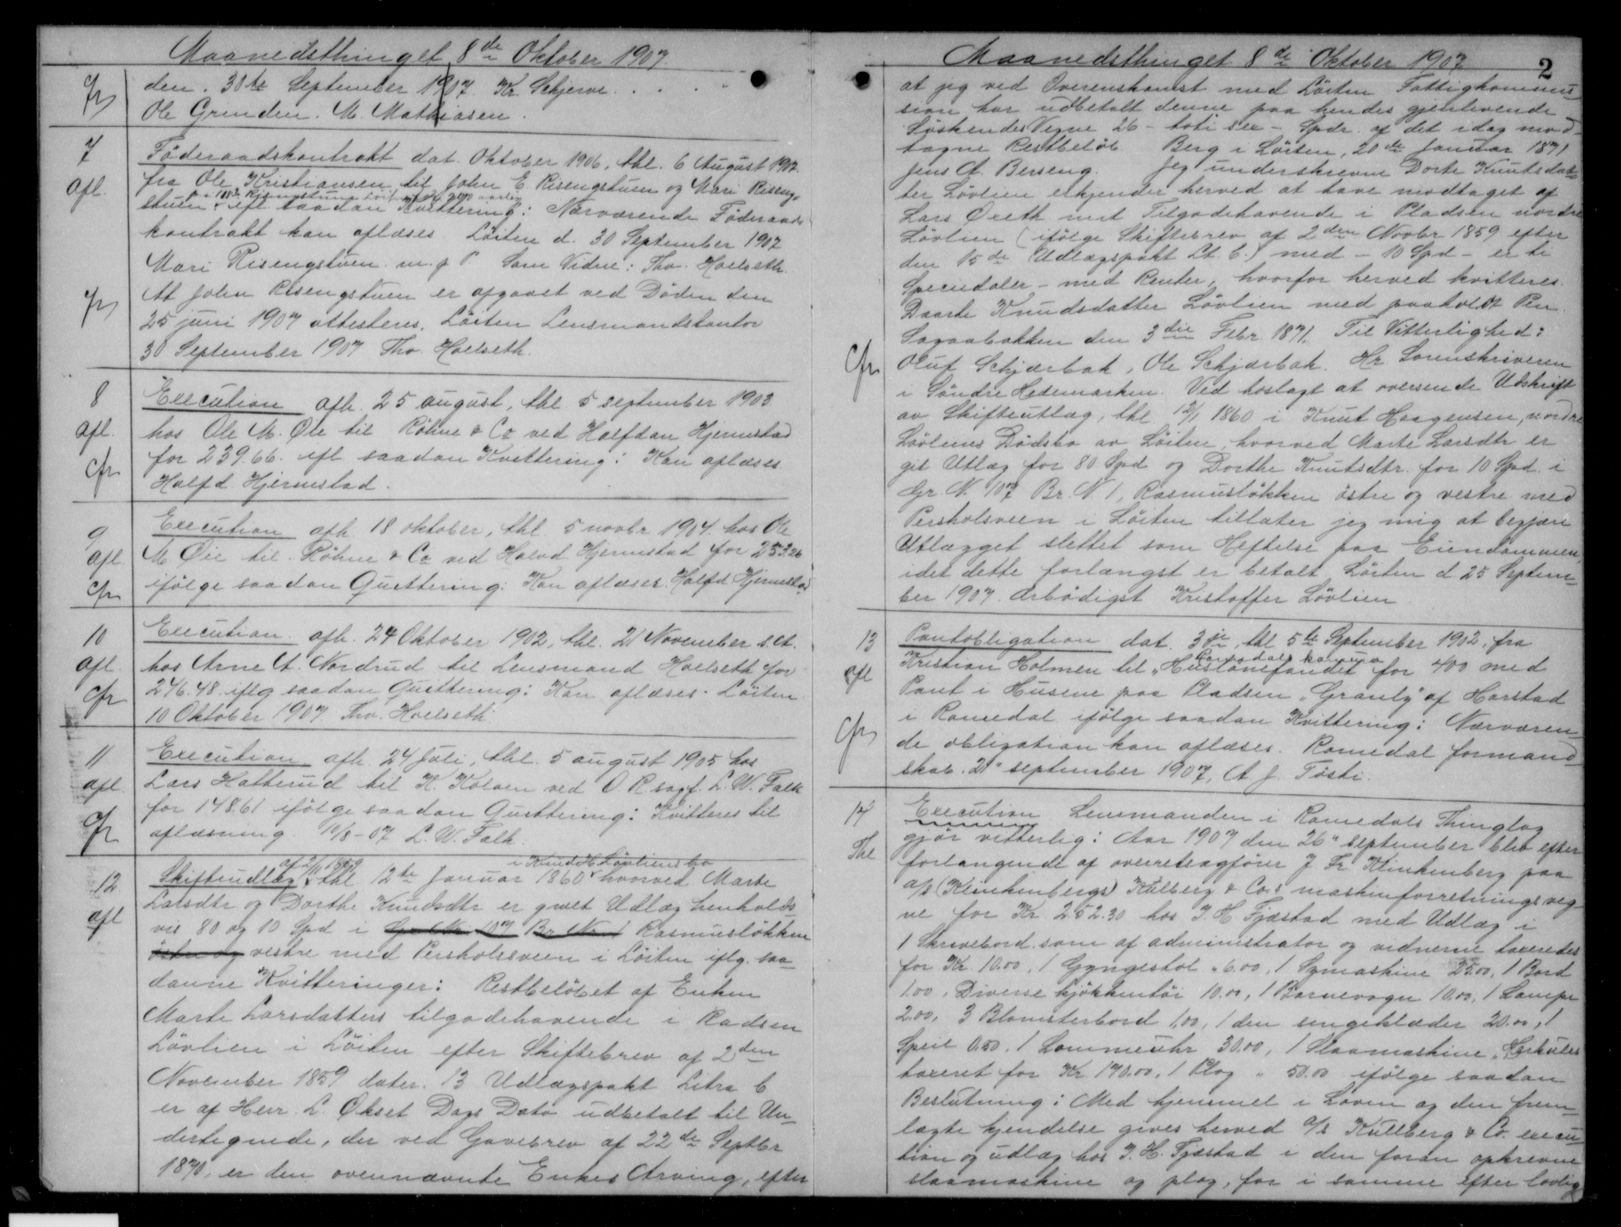 Maanedsthinget 8de Oktober 1907
cfr den 30te September 1907 Kr. Schjerve . . . .
Ole Grinden. M. Mathiasen.
7 Føderaadskontrakt dat. Oktober 1906, thl. 6 August 1907
afl. fra Ole Kristiansen til John E. Risengstuen og Mari Riseng-
stuen ift saadan Kvittering: Nærværende Føderaads
kontrakt kan aflæses Løiten d. 30 September 1907
Mari Risengstuen m. p. P. Som Vidne: Thv. Hoelseth.
cfr At John Risengstuen er afgaaet ved Døden den
25 juni 1907 attesteres. Løiten Lensmandskontor
30 September 1907 Thv Hoelseth.
8 Execution afh. 25 august, thl 5 september 1903
afl. hos Ole M. Øie til Røhne & Co ved Halfdan Hjernestad
cfr for 239.66 ifl saadan Kvittering: Kan aflæses
Halfd Hjernestad.
9 Execution afh 18 oktober, thl 5 novbr 1904 hos Ole
afl. M Øie til Røhne & Co ved Halvd Hjernestad for 253.26
cfr ifølge saadan Quittering: Kan aflæses Halfd Hjernestad
10 Execution afh. 24 Oktober 1902, thl. 21 November s.A.
afl. hos Arne A. Nordrud til Lensmand Hoelseth for
cfr 246.48 iflg saadan Quittering: Kan aflæses. Løiten
10 Oktober 1907. Thv. Hoelseth
11 Execution afh. 24 Juli, thl. 5 august 1905 hos
afl. Lars Hatterud til K. Kolaen ved O R sagf. L. W. Falk
cfr for 148.61 ifølge saadan Quittering: Kvitteres til
aflæsning 10/8-07 L. W. Falk.
af 2/11 1859 i Knud Løvliens bo
12 Skifteudlæg thl 12te Januar 1860 hvorved Marte
afl Larsdtr og Dorthe Knudsdtr er givet Udlæg henholds
vis 80 og 10 Spd i Gr. Nr. 107 Br Nr 1 Rasmusløkken
østre og vestre med Persholsveen i Løiten iflg. saa-
danne Kvitteringer: Restbeløbet af Enken
Marte Larsdatters tilgodehavende i Pladsen
Løvlien i Løiten efter Skiftebrev af 2den
November 1859 dater. 13 Udlægspakt Litra C
er af Herr L. Økset Dags Dato udbetalt til Un-
dertegnede, der ved Gavebrev af 22de Septbr
1870, er den ovennævnte Enkes Arving, efter
Maanedsthinget 8de Oktober 1907
2
at jeg ved Overenskomst med Løiten Fattigkommis-
sion har udbetalt denne paa hendes gjenlevende
Søskendes Vegne 26 - toti sex - Spdr. af det idag mod-
tagne Restbeløb Berg i Løiten, 20de Januar 1871
Jens A. Berseng. Jeg underskrevne Dorte Knutsdat-
ter Løvlien erkjender herved at have modtaget af
Lars Øxeth mit Tilgodehavende i Pladsen nordre
Løvlien (ifølge Skiftebrev af 2den Novbr 1859 efter
den 15de Udlægspakt Lt. C.) med - 10 Spd - er ti
Speciedaler - med Renter, hvorfor herved kvitteres
Daarte Knudsdatter Løvlien med paaholdt Pen.
Sagaabakken den 3die Febr 1871 Til Vitterlighed:
cfr Oluf Schjærbak, Ole Schjærbak. Hr Sorenskriveren
i Søndre Hedemarken. Ved hoslagt at oversende Utskrift
av Skifteutlæg, thl 12/1 1860 i Knut Haagensen, nordre
Løvliens Dødsbo av Løiten hvorved Marte Larsdtr er
git Utlæg for 80 Spd og Dorthe Knutsdtr. for 10 Spd i
Gr. N. 107 Br. N 1, Rasmusløkken østre og vestre med
Persholsveen i Løiten tillater jeg mig at begjære
Utlægget slettet som Heftelse paa Eiendommen,
idet dette forlængst er betalt Løiten d 25 Septem-
ber 1907. Ærbødigst Kristoffer Løvlien
13 Pantobligation dat. 3die, thl 5te September 1902 fra
afl Kristian Holmen til "Huslaanefondet for 400 med
Pant i Husene paa Pladsen "Granly" af Harstad
cfr i Romedal ifølge saadan Kvittering: Nærværen-
de obligation kan aflæses. Romedal formand-
skab 21' september 1907, A. J. Tøsti.
14 Execution Lensmanden i Romedals Thinglag
Thl gjør vitterlig: Aar 1907 den 26" september blev efter
forlangende af overretssagfører J Fr Klinkenberg paa
a/s (Klinkenbergs) Kullberg & Co.s maskinforretnings veg-
ne for Kr 252.30 hos J. H Fjæstad med Udlæg i
1 Skrivebord som af administrator og vidnerne taxeredes
for Kr 10.00, 1 Gyngestol " 6.00, 1 Symaskine 25.00, 1 Bord
1.00, Diverse kjøkkentøi 10.00, 1 Barnevogn 10.00, 1 Lampe
2.00, 3 Blomsterbord 1.00, 1 den sengeklæder 20.00, 1
Speil 0.50, 1 Lommeuhr 30.00, 1 Slaamaskine "Herkules
taxeret for Kr 170.00, 1 Plog " 50.00 ifølge saadan
Beslutning: Med hjemmel i Loven og den frem-
lagte kjendelse gives herved a/s Kullberg & Co. execu-
tion og udlæg hos J. H. Fjæstad i den foran opskrevne
slaamaskine og plog, for i samme efter lovlig